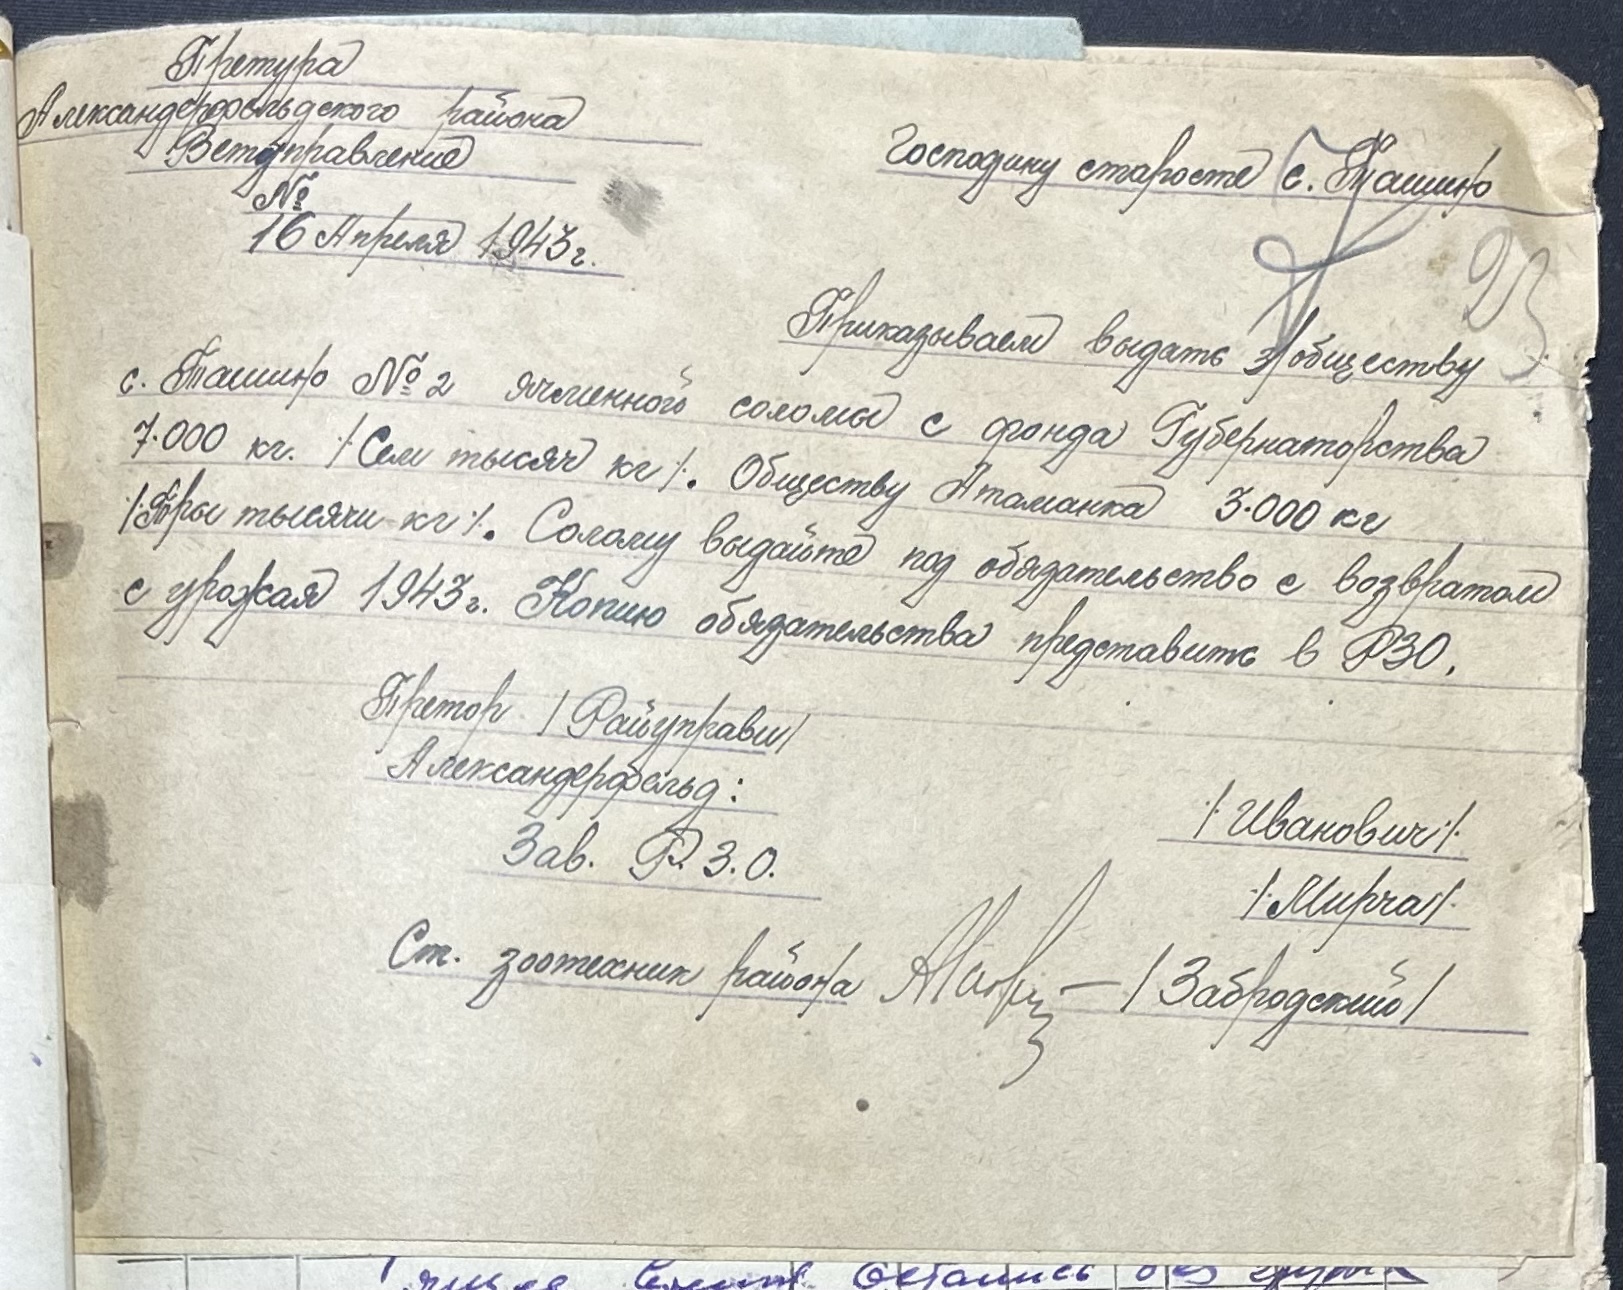 Претура
Александерфельдского района
Ветуправление
№
16 Апреля 1943 г.
Господину старосте с. Ташино
23
Приказываем выдать з/обществу
с. Ташино № 2 ячменной соломы с фонда Губернаторства
7.000 кг. /Сем тысяч кг/. Обществу Атаманка 3.000 кг
/:Тры тысячи кг:/. Солому выдайте под обязательство с возвратом
с урожая 1943 г. Копию обязательства представить в РЗО.
Претор /Райуправы/
Александерфельд:
Зав. Р.З.О.
/:Иванович:/
/:Мирча:/
Ст. зоотехник района
— /Забродский/